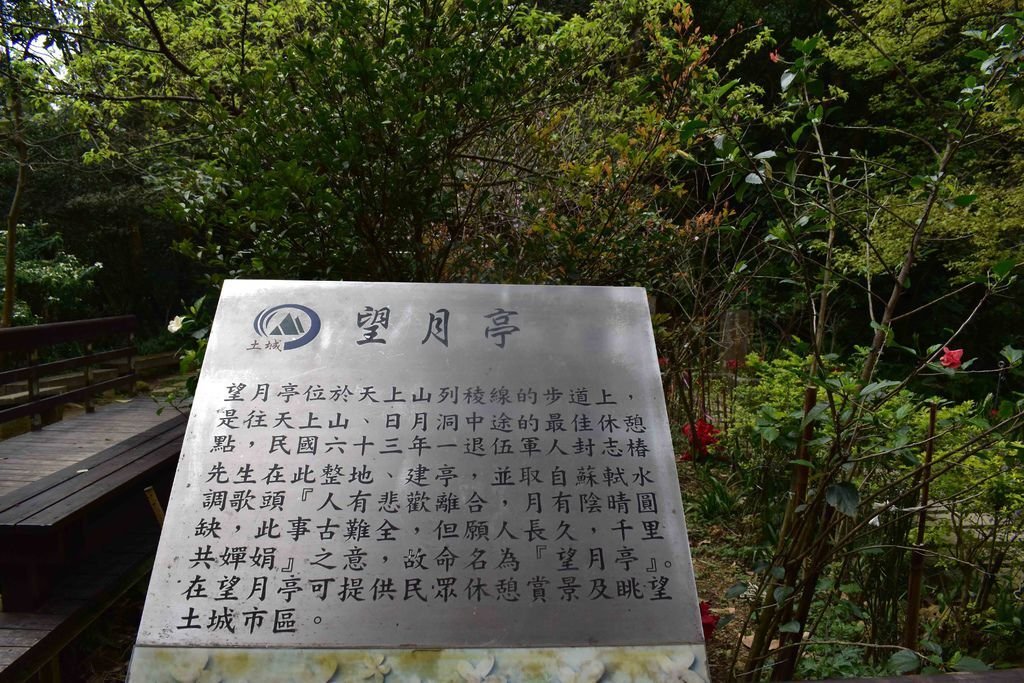 土城
望月亭
望月亭位於天上山列稜線的步道上，
是往天上山、日月洞中途的最佳休憩
點，民國六十三年一退伍軍人封志椿
先生在此整地、建亭，並取自蘇軾水
調歌頭『人有悲歡離合，月有陰晴圓
缺，此事古難全，但願人長久，千里
共嬋娟』之意，故命名為『望月亭』。
在望月亭可提供民眾休憩賞景及眺望
土城市區。